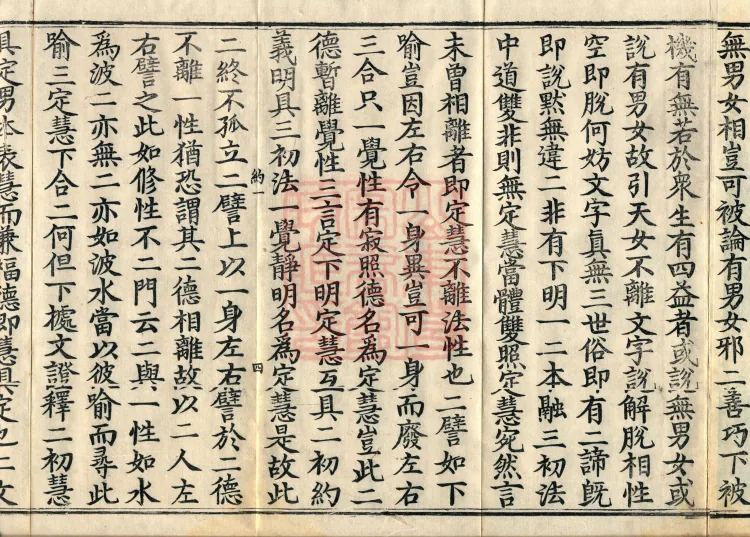 無男女相豈可被論有男女邪二善巧下被
機有無若於衆生有四益者或說無男女或
說有男女故引天女不離文字說解脫相性
空即脫何妨文字真無三世俗即有二諦既
即說默無違二非有下明一二本融三初法
中道雙非則無定慧當體雙照定慧宛然言
未曾相離者即定慧不離法性也二譬如下
喻豈因左右令一身異豈可一身而廢左右
三合只一覺性有寂照德名為定慧豈此二
德暫離覺性三言定下明定慧互具二初約
義明具三初法一覺靜明名為定慧是故此
約一
四
二終不孤立二譬上以一身左右譬於二德
不離一性猶恐謂其二德相離故以二人左
右譬之此如修性不二門云二與一性如水
為波二亦無二亦如波水當以彼喻而尋此
喻三定慧下合二何但下據文證釋二初慧
具定男本表慧而兼福德即慧具定也二文